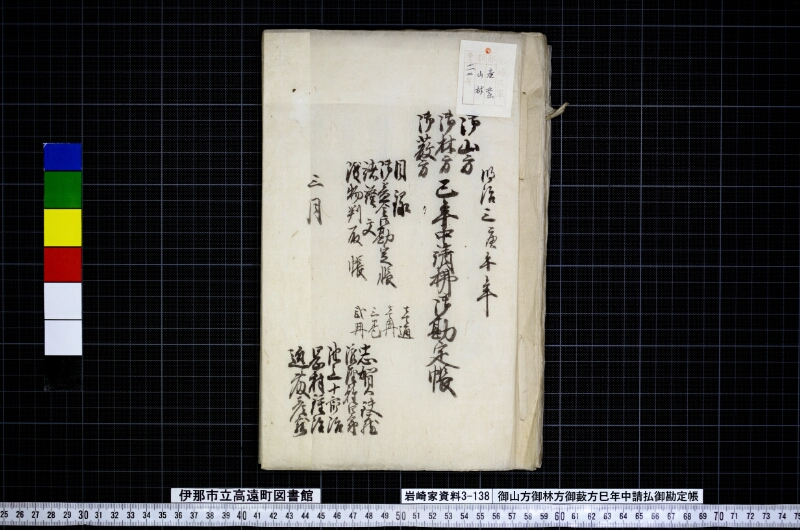 産業
山林
明治三庚午年
御山方
御林方
御薮方
巳年中請払御勘定帳
目録
壱通
御金勘定帳
壱冊
諸證文
三巻
渡物判取帳
弐冊
三月
志賀
池上十
岡村
伊那市立高遠町図書館
岩崎家資料3-138
御山方御林方御薮方巳年中請払御勘定帳
25 26 27 28 29 30 31 32 33 34 35 36 37 38 39 40 41 42 43 44 45 46 47 48 49 50 51 52 53 54 55 56 57 58 59 60 61 62 63 64 65 66 67 68 69 70 71 72 73 74 75